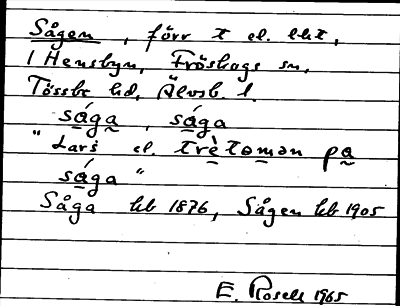 Sågen, förr t el. lht,
i Hensbyn, Fröskogs sn,
Tössbo hd, Älvsb. l.
såga, såga
"Lars el. trètəmən pa
såga"
Såga hb 1876, Sågen hb 1905
E. Rosell 1965